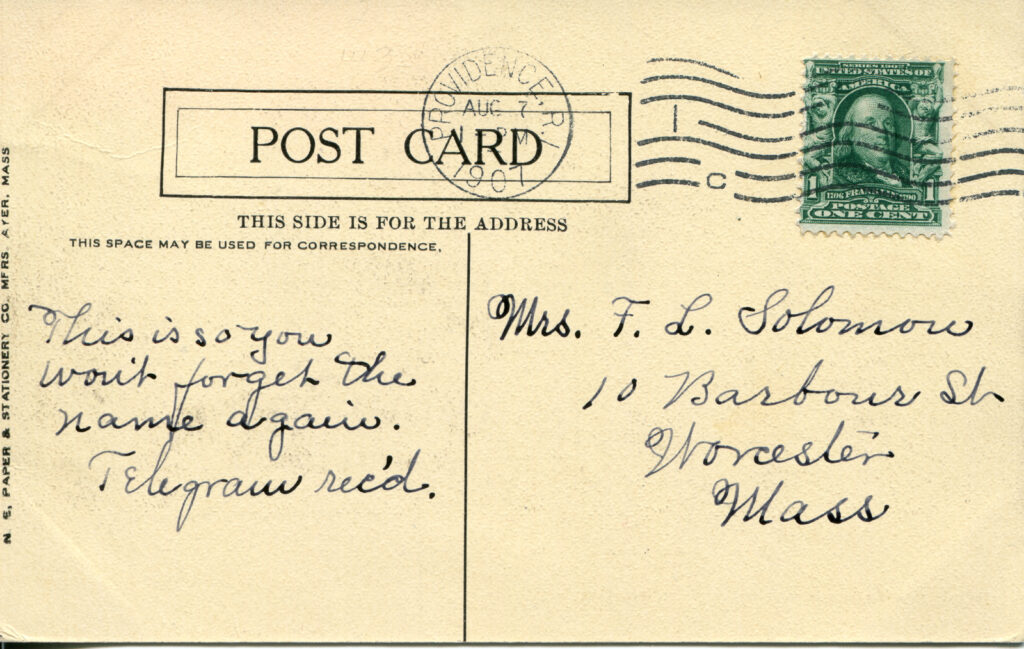 PROVIDENCE, R.I.
AUG 7
PM
1907
1
C
SERIES 1902
UNITED STATES OF
AMERICA
1706 FRANKLIN 1790
1 1
POSTAGE
ONE CENT
POST CARD
THIS SIDE IS FOR THE ADDRESS
THIS SPACE MAY BE USED FOR CORRESPONDENCE.
This is so you
won't forget the
name again.
Telegram rec'd.
Mrs. F. L. Solomon
10 Barbour St
Worcester
Mass
N. E. PAPER & STATIONERY CO. MFRS. AYER, MASS